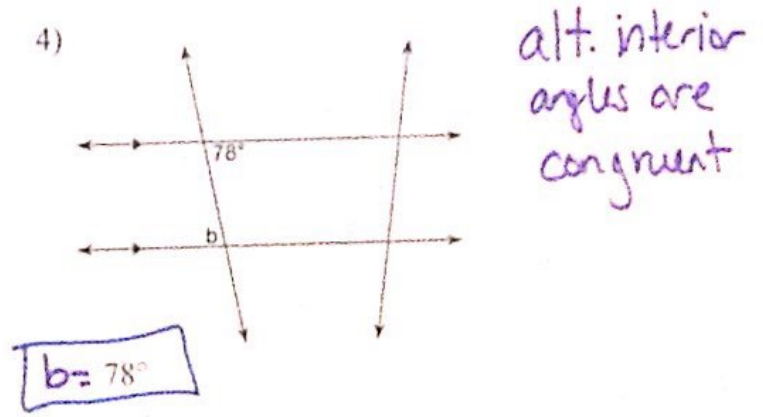 4)
alt. interior
angles are
congruent
78°
b
b= 78°